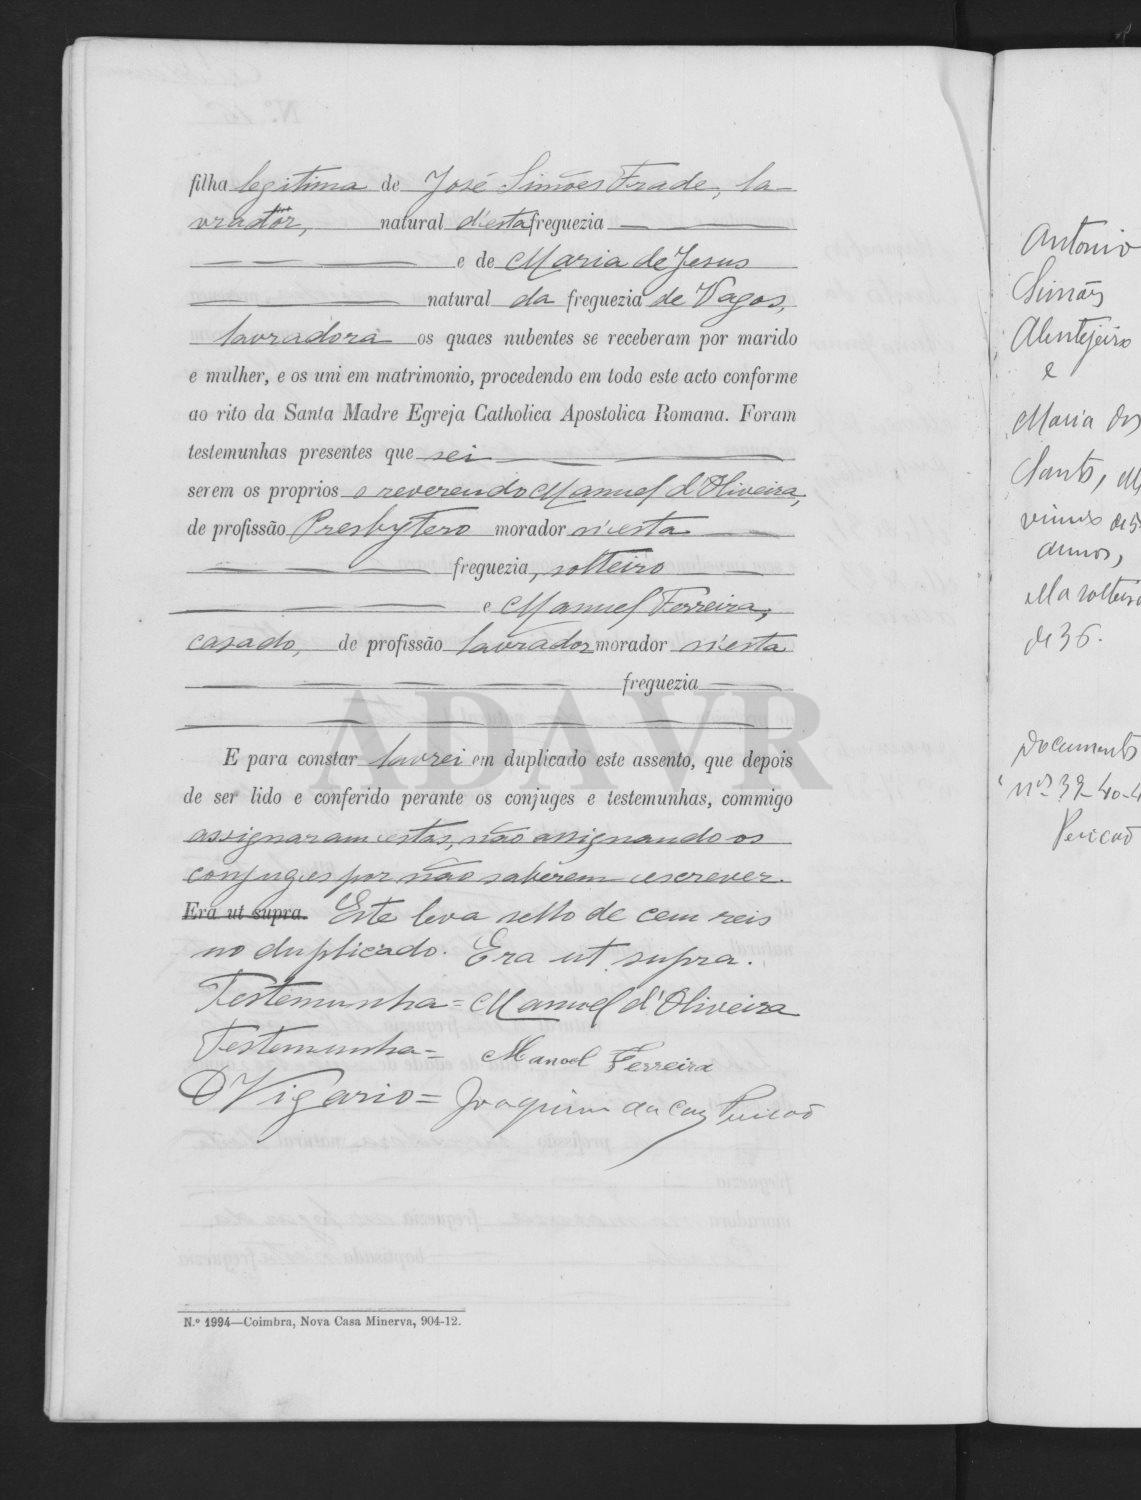 filha legitima de José Simões Frade, la-
vrador, natural d'esta freguezia
e de Maria de Jesus
natural da freguezia de Vagos,
lavradora os quaes nubentes se receberam por marido
e mulher, e os uni em matrimonio, procedendo em todo este acto conforme
ao rito da Santa Madre Egreja Catholica Apostolica Romana. Foram
testemunhas presentes que sei
serem os proprios o reverendo Manuel d'Oliveira,
de profissão Presbytero morador n'esta
freguezia, solteiro
e Manuel Ferreira,
casado, de profissão lavrador morador n'esta
freguezia
E para constar lavrei em duplicado este assento, que depois
de ser lido e conferido perante os conjuges e testemunhas, commigo
assignaram estas, não assignando os
conjuges por não saberem escrever.
Era ut supra. Este leva sello de cem reis
no duplicado. Era ut supra.
Testemunha = Manuel d'Oliveira
Testemunha = Manoel Ferreira
O Vigario = Joaquim da Cruz
N.º 1994—Coimbra, Nova Casa Minerva, 904-12.
ADAVR
Antonio
Simões
Alentejeiro
e
Maria dos
Santos,
annos,
ella solteira
de 36.
Documentos
nos 39-40-4